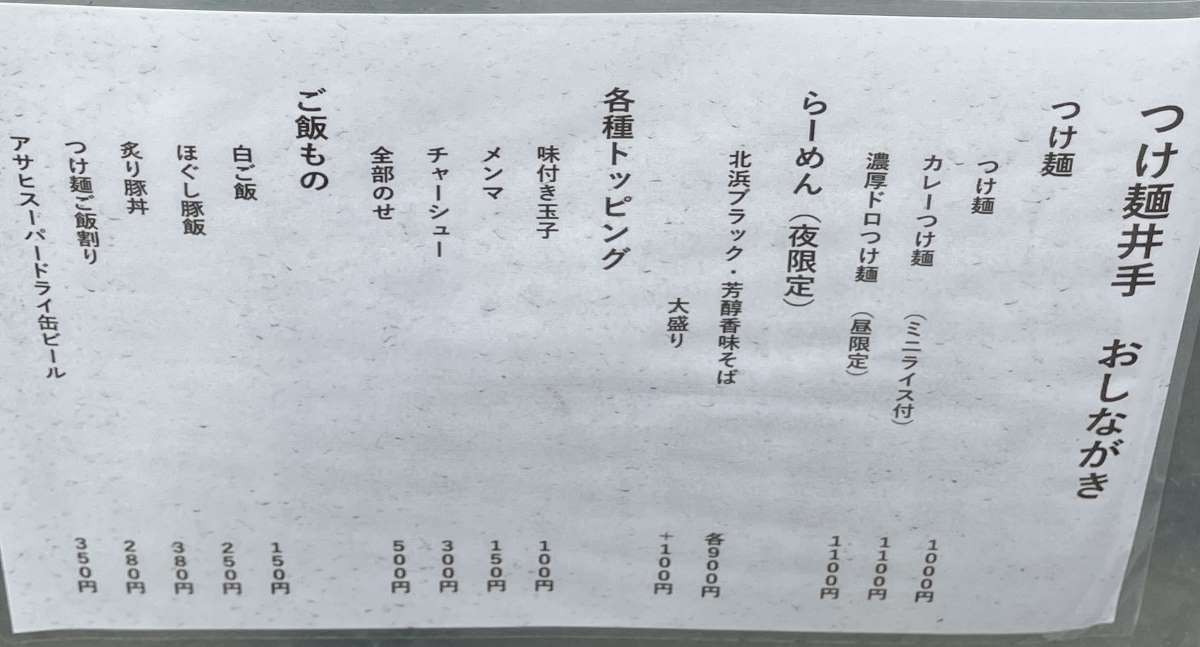 つけ麺井手 おしながき
つけ麺
つけ麺 1000円
カレーつけ麺 (ミニライス付) 1100円
濃厚ドロつけ麺 (昼限定) 1100円
らーめん (夜限定)
北浜ブラック・芳醇香味そば 各900円
大盛り +100円
各種トッピング
味付き玉子 100円
メンマ 150円
チャーシュー 300円
全部のせ 500円
ご飯もの
白ご飯 150円
ほぐし豚飯 250円
炙り豚丼 380円
つけ麺ご飯割り 280円
アサヒスーパードライ缶ビール 350円